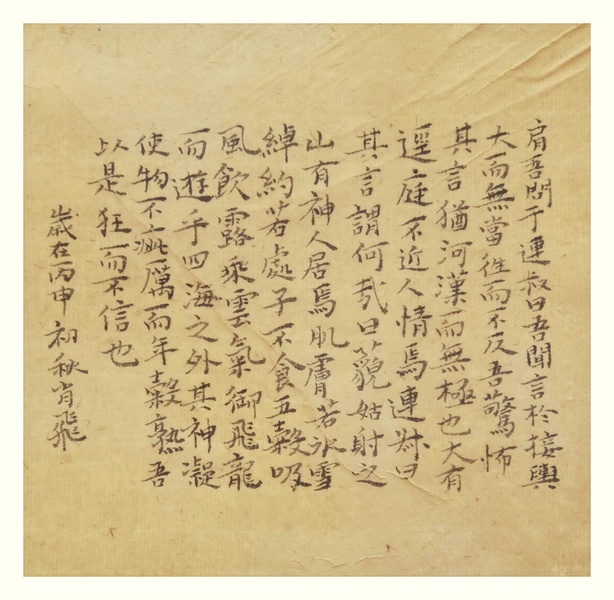 肩吾問于連叔曰吾聞言於接輿
大而無當往而不反吾驚怖
其言猶河漢而無極也大有
逕庭不近人情焉連叔曰
其言謂何哉曰藐姑射之
山有神人居焉肌膚若冰雪
綽約若處子不食五穀吸
風飲露乘雲氣御飛龍
而遊乎四海之外其神凝
使物不疵厲而年穀熟吾
以是狂而不信也
歲在丙申初秋肖飛